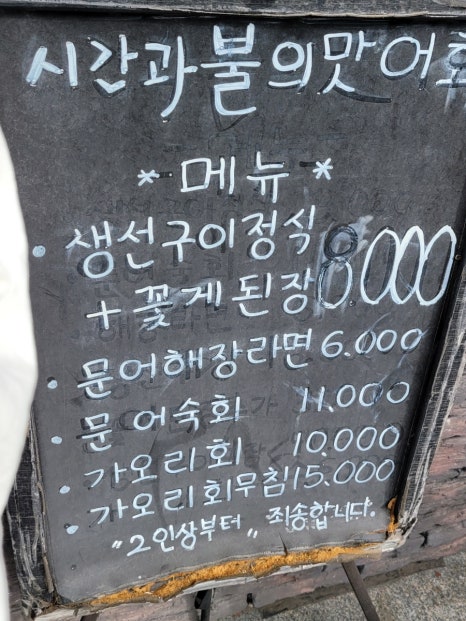 시간과 불의 맛 어호
* 메뉴 *
· 생선구이정식
+ 꽃게된장 8000
· 문어해장라면 6.000
· 문어숙회 11.000
· 가오리회 10.000
· 가오리회무침 15.000
"2인상부터" 죄송합니다.